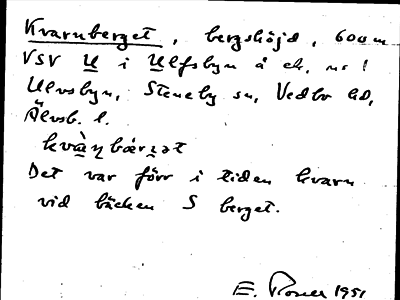 Kvarnberget, bergshöjd, 600 m
VSV U i Ulfsbyn å ek, nr 1
Ulvsbyn, Steneby sn, Vedbo hd,
Älvsb. l.
Det var förr i tiden kvarn
vid bäcken S berget.
E. 1951